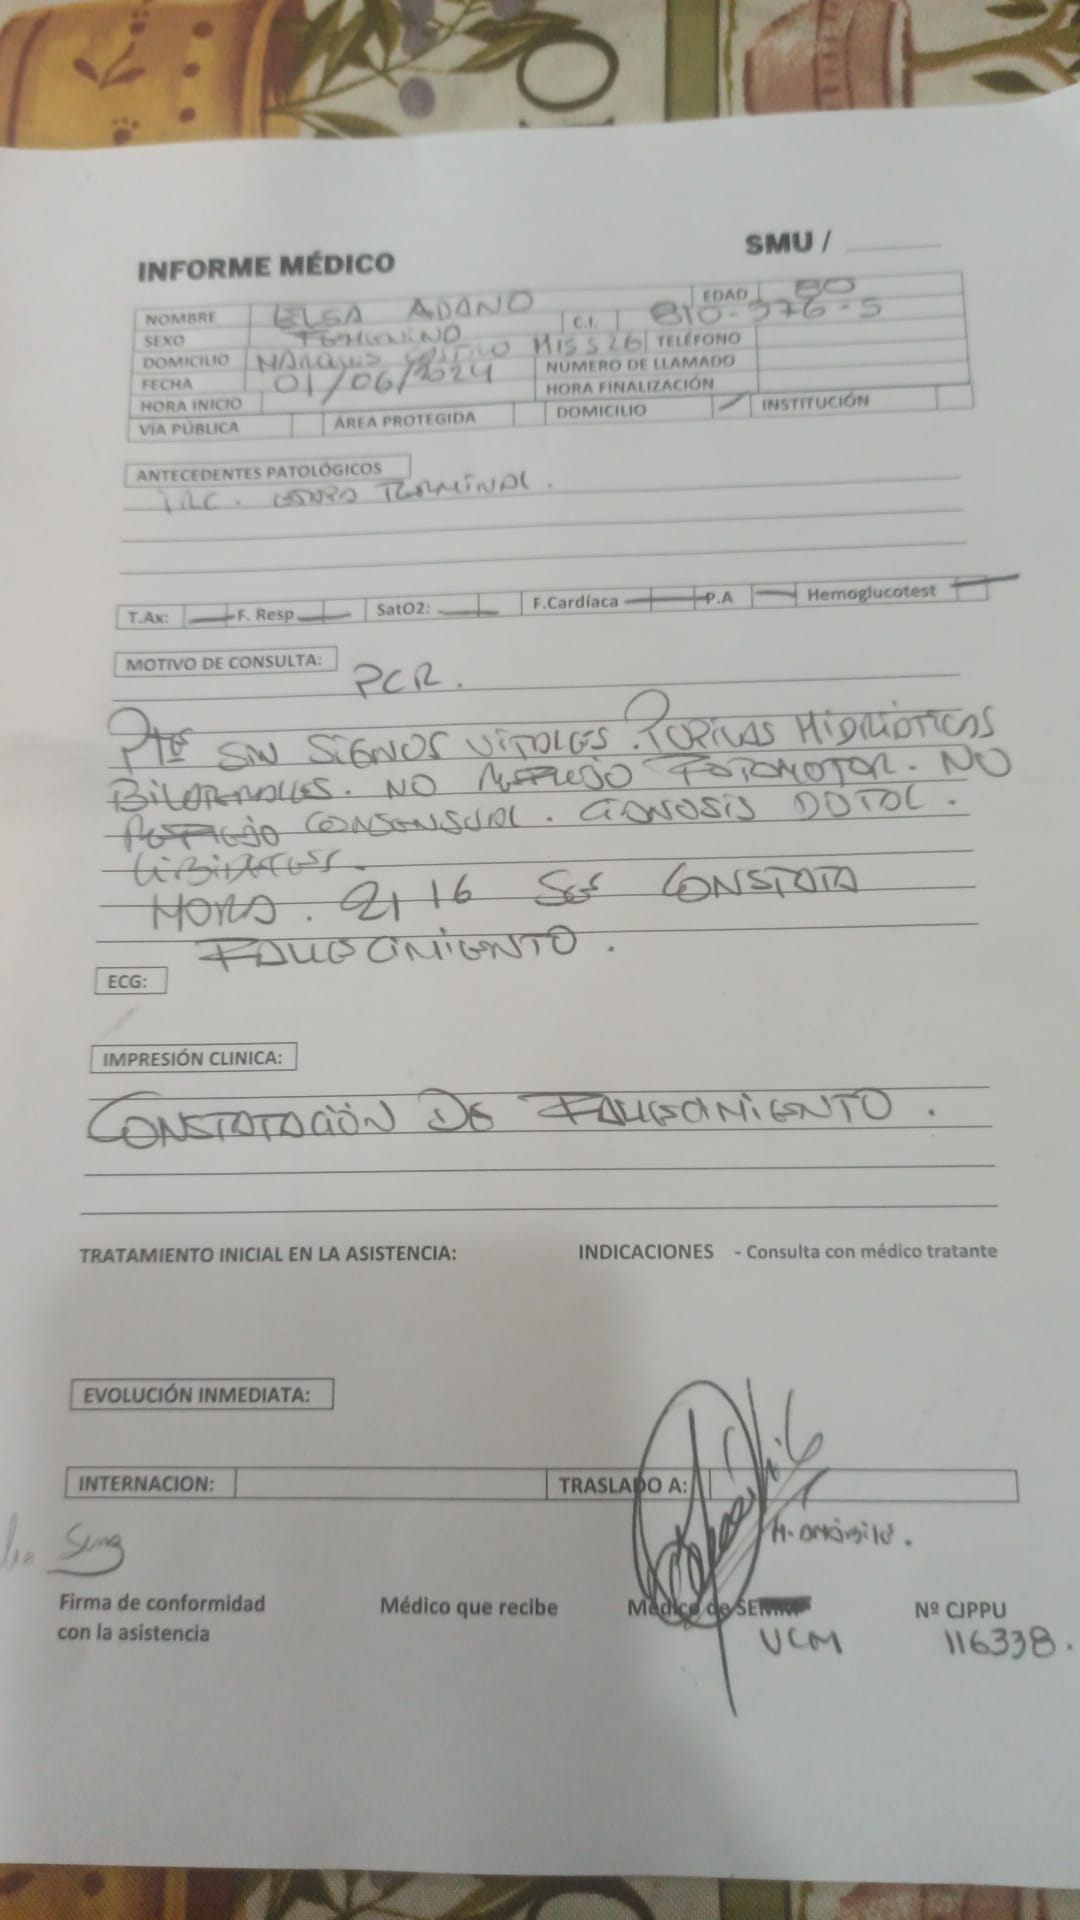 INFORME MÉDICO
SMU /
NOMBRE ELSA ADANO EDAD 80
SEXO FEMENINO C.I. 810-376-5
DOMICILIO TELÉFONO
FECHA 01/06/2024 NUMERO DE LLAMADO
HORA INICIO HORA FINALIZACIÓN
VÍA PÚBLICA ÁREA PROTEGIDA DOMICILIO INSTITUCIÓN
ANTECEDENTES PATOLÓGICOS
TERMINAL.
T.Ax: F. Resp SatO2: F.Cardíaca P.A Hemoglucotest
MOTIVO DE CONSULTA:
PCR.
Pte SIN SIGNOS VITALES. PUPILAS MIDRIÁTICAS
BILATERALES. NO REFLEJO FOTOMOTOR. NO
REFLEJO CONSENSUAL. CIANOSIS DISTAL.
HORA. 21 16 SE CONSTATA
FALLECIMIENTO.
ECG:
IMPRESIÓN CLINICA:
CONSTATACIÓN DE FALLECIMIENTO.
TRATAMIENTO INICIAL EN LA ASISTENCIA: INDICACIONES - Consulta con médico tratante
EVOLUCIÓN INMEDIATA:
INTERNACION: TRASLADO A:
Firma de conformidad
con la asistencia
Médico que recibe
Médico de
UCM
Nº CJPPU
116338.